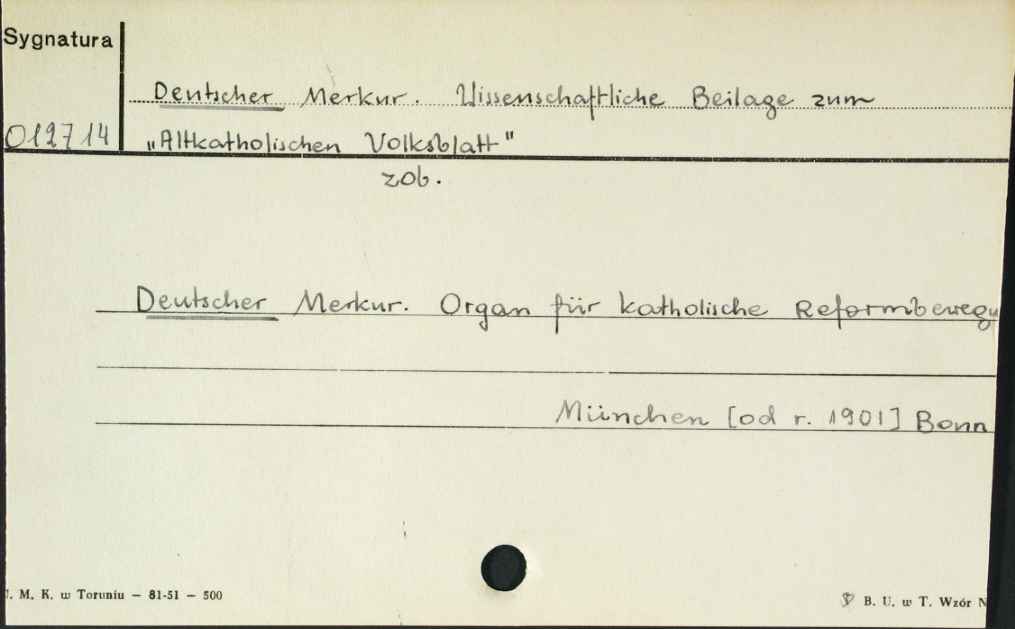 Sygnatura
Deutscher Merkur. Wissenschaftliche Beilage zum
012714 "Altkatholischen Volksblatt"
zob.
Deutscher Merkur. Organ für katholische Reformbewegu
München [od r. 1901] Bonn
M. K. w Toruniu — 81-51 — 500
B. U. w T. Wzór N